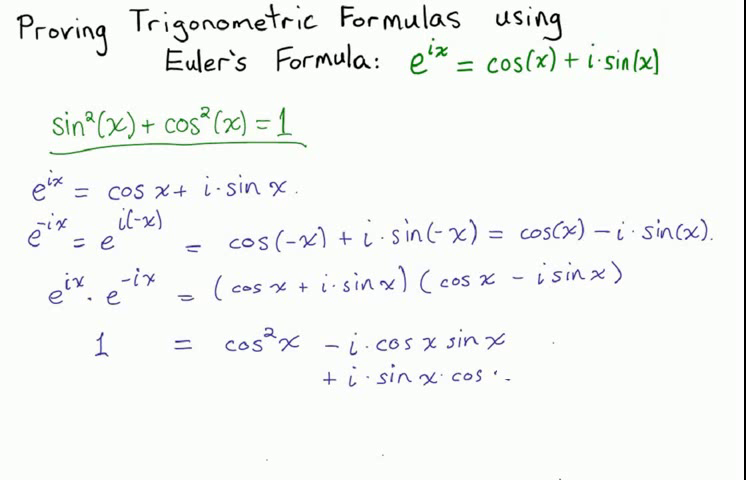 Proving Trigonometric Formulas using
Euler's Formula: e^{ix} = cos(x) + i·sin(x)
sin²(x) + cos²(x) = 1
e^{ix} = cos x + i·sin x.
e^{-ix} = e^{i(-x)} = cos(-x) + i·sin(-x) = cos(x) - i·sin(x).
e^{ix}·e^{-ix} = (cos x + i·sin x)(cos x - i sin x)
1 = cos²x - i·cos x sin x
+ i·sin x·cos